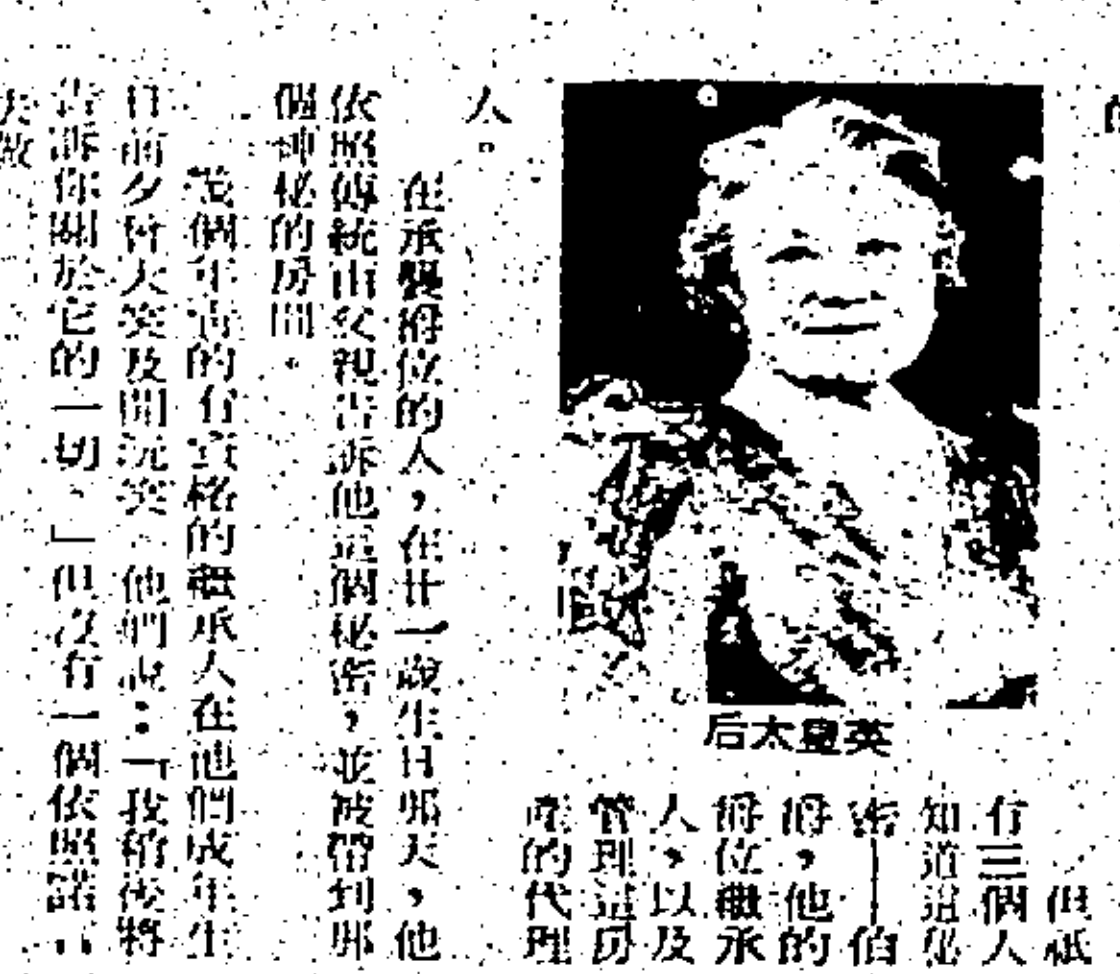 英皇太后
但祇
有三個人
知道這秘
密——伯
爵,他的
爵位繼承
人,以及
管理這房
產的代理
人。
在承襲爵位的人,在廿一歲生日那天,他
依照傳統由父親告訴他這個秘密,並被帶到那
個神秘的房間。
幾個年青的有資格的繼承人在他們成年生
日前夕付大笑及開玩笑。他們說:「我稍後將
告訴你關於它的一切。」但沒有一個依照諾言
去做